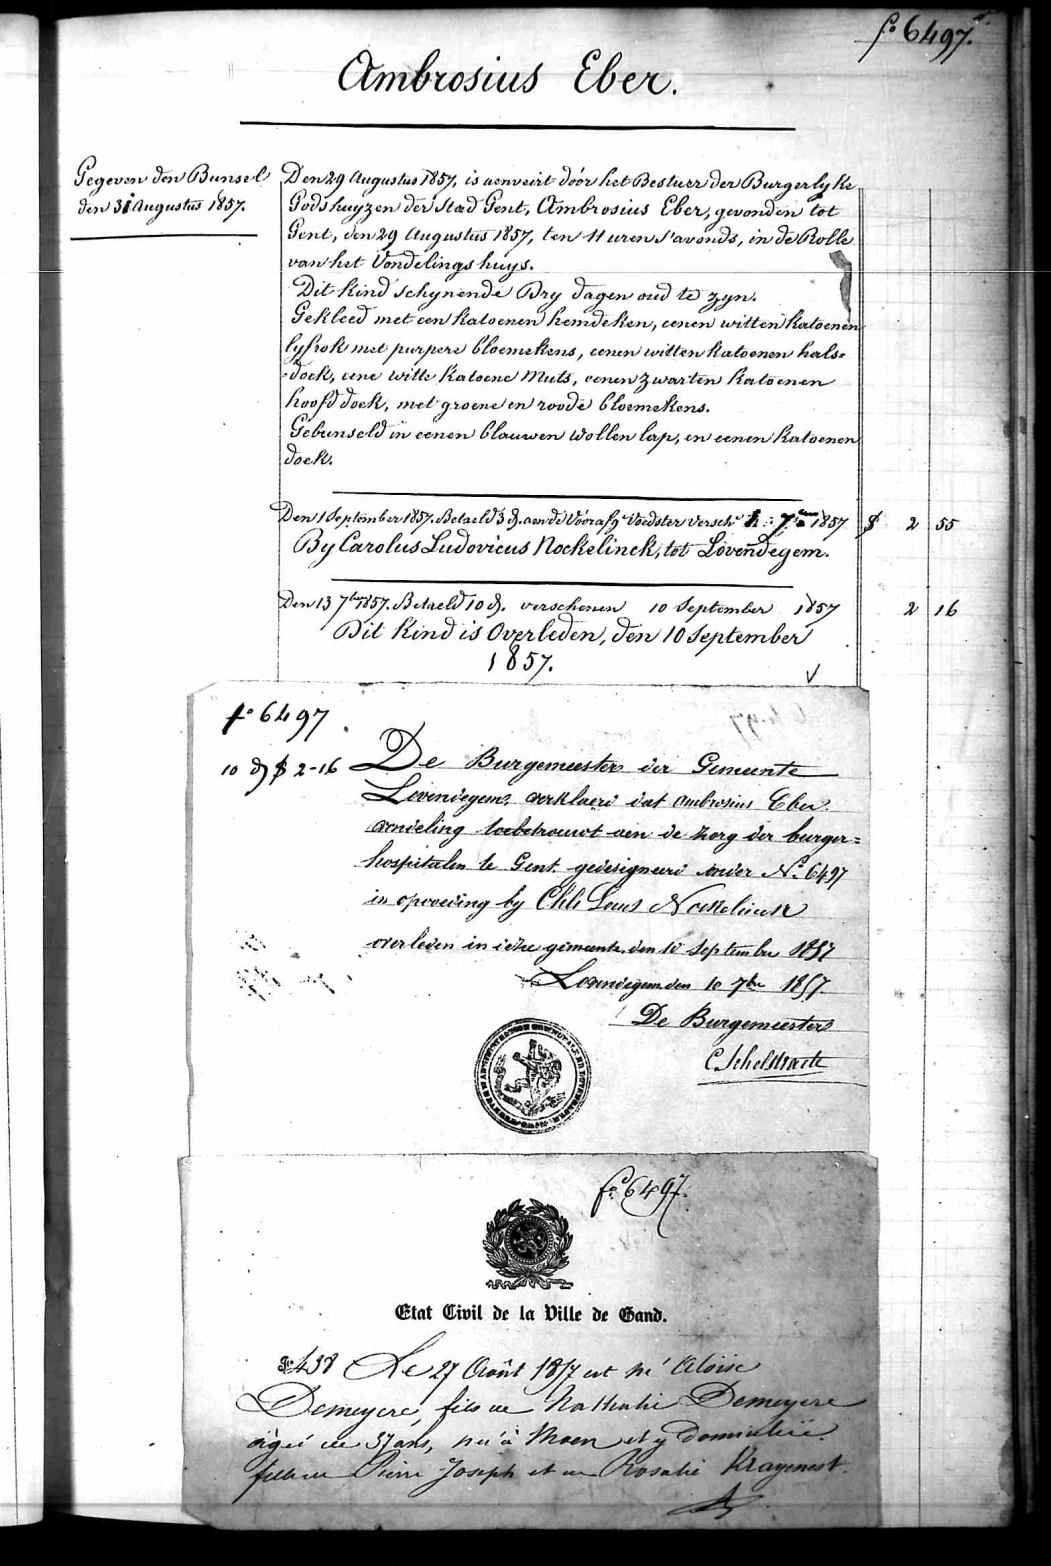 fo 6497.
Ambrosius Eber.
Gegeven den Bunsel
den 31 Augustus 1857.
Den 29 Augustus 1857, is aenveirt door het Bestuer der Burgerlyke
Godshuyzen der Stad Gent, Ambrosius Eber, gevonden tot
Gent, den 29 Augustus 1857, ten 11 uren s'avonds, in de Rolle
van het Vondelingshuys.
Dit kind schynende Dry dagen oud te zyn.
Gekleed met een katoenen hemdeken, eenen witten katoenen
lyfrok met purpere bloemekens, eenen witten katoenen hals=
doek, eene witte katoene Muts, eenen zwarten katoenen
hoofddoek, met groene en roode bloemekens.
Gebunseld in eenen blauwen wollen lap, en eenen katoenen
doek.
Den 1 September 1857. Betaeld 3 d. aen de Voorafge Voedster versch. 1857 2 55
By Carolus Ludovicus Nockelinck, tot Lovendegem.
Den 13 7ber 1857. Betaeld 10 d. verschenen 10 September 1857 2 16
Dit kind is Overleden, den 10 September
1857.
fo 6497
10 d 2-16
De Burgemeester der Gemeente
Lovendegem, verklaerd dat Ambrosius Eber
vondeling toebetrouwt aen de zorg der burger=
hospitalen te Gent gedesigneerd onder No 6497
in opvoeding by Chls Louis Nockelinck
overleden in deze gemeente den 10 September 1857
Lovendegem den 10 7ber 1857
De Burgemeester
C. Schelstraete
fo 6497.
Etat Civil de la Ville de Gand.
438 Le 27 Août 1857 est né Aloise
Demeyere, fils de Nathalie Demeyere
âgée de 37 ans, née à Moen et y domiciliée
fille de Pierre Joseph et de Rosalie Kraeynest.